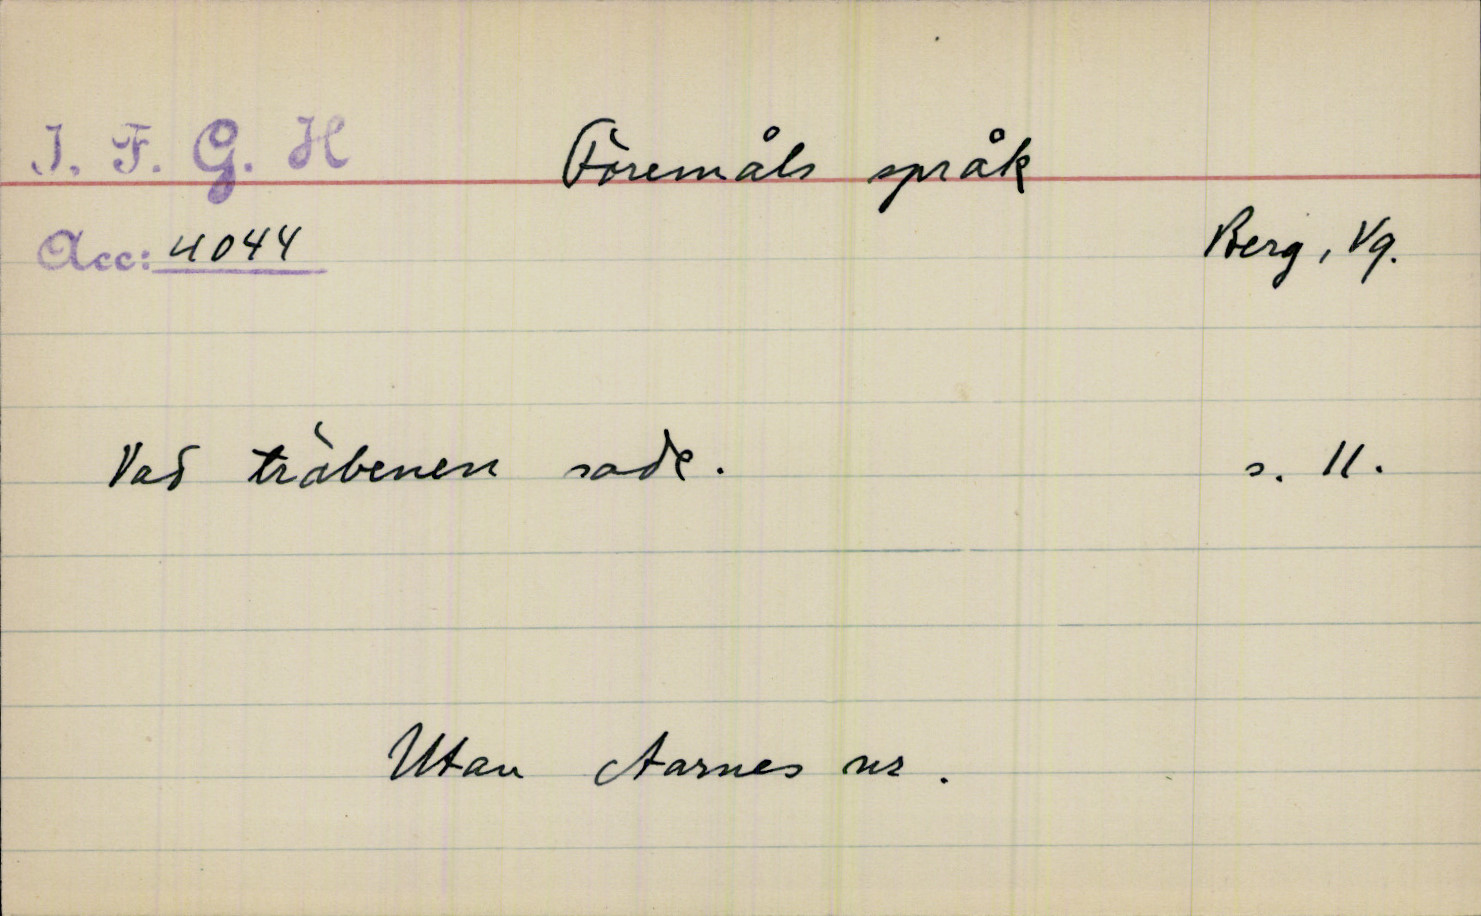 I. F. G. H
Föremåls språk
Acc: 4044
Berg, Vg.
Vad träbenen sade. s. 11.
Utan Aarnes nr.